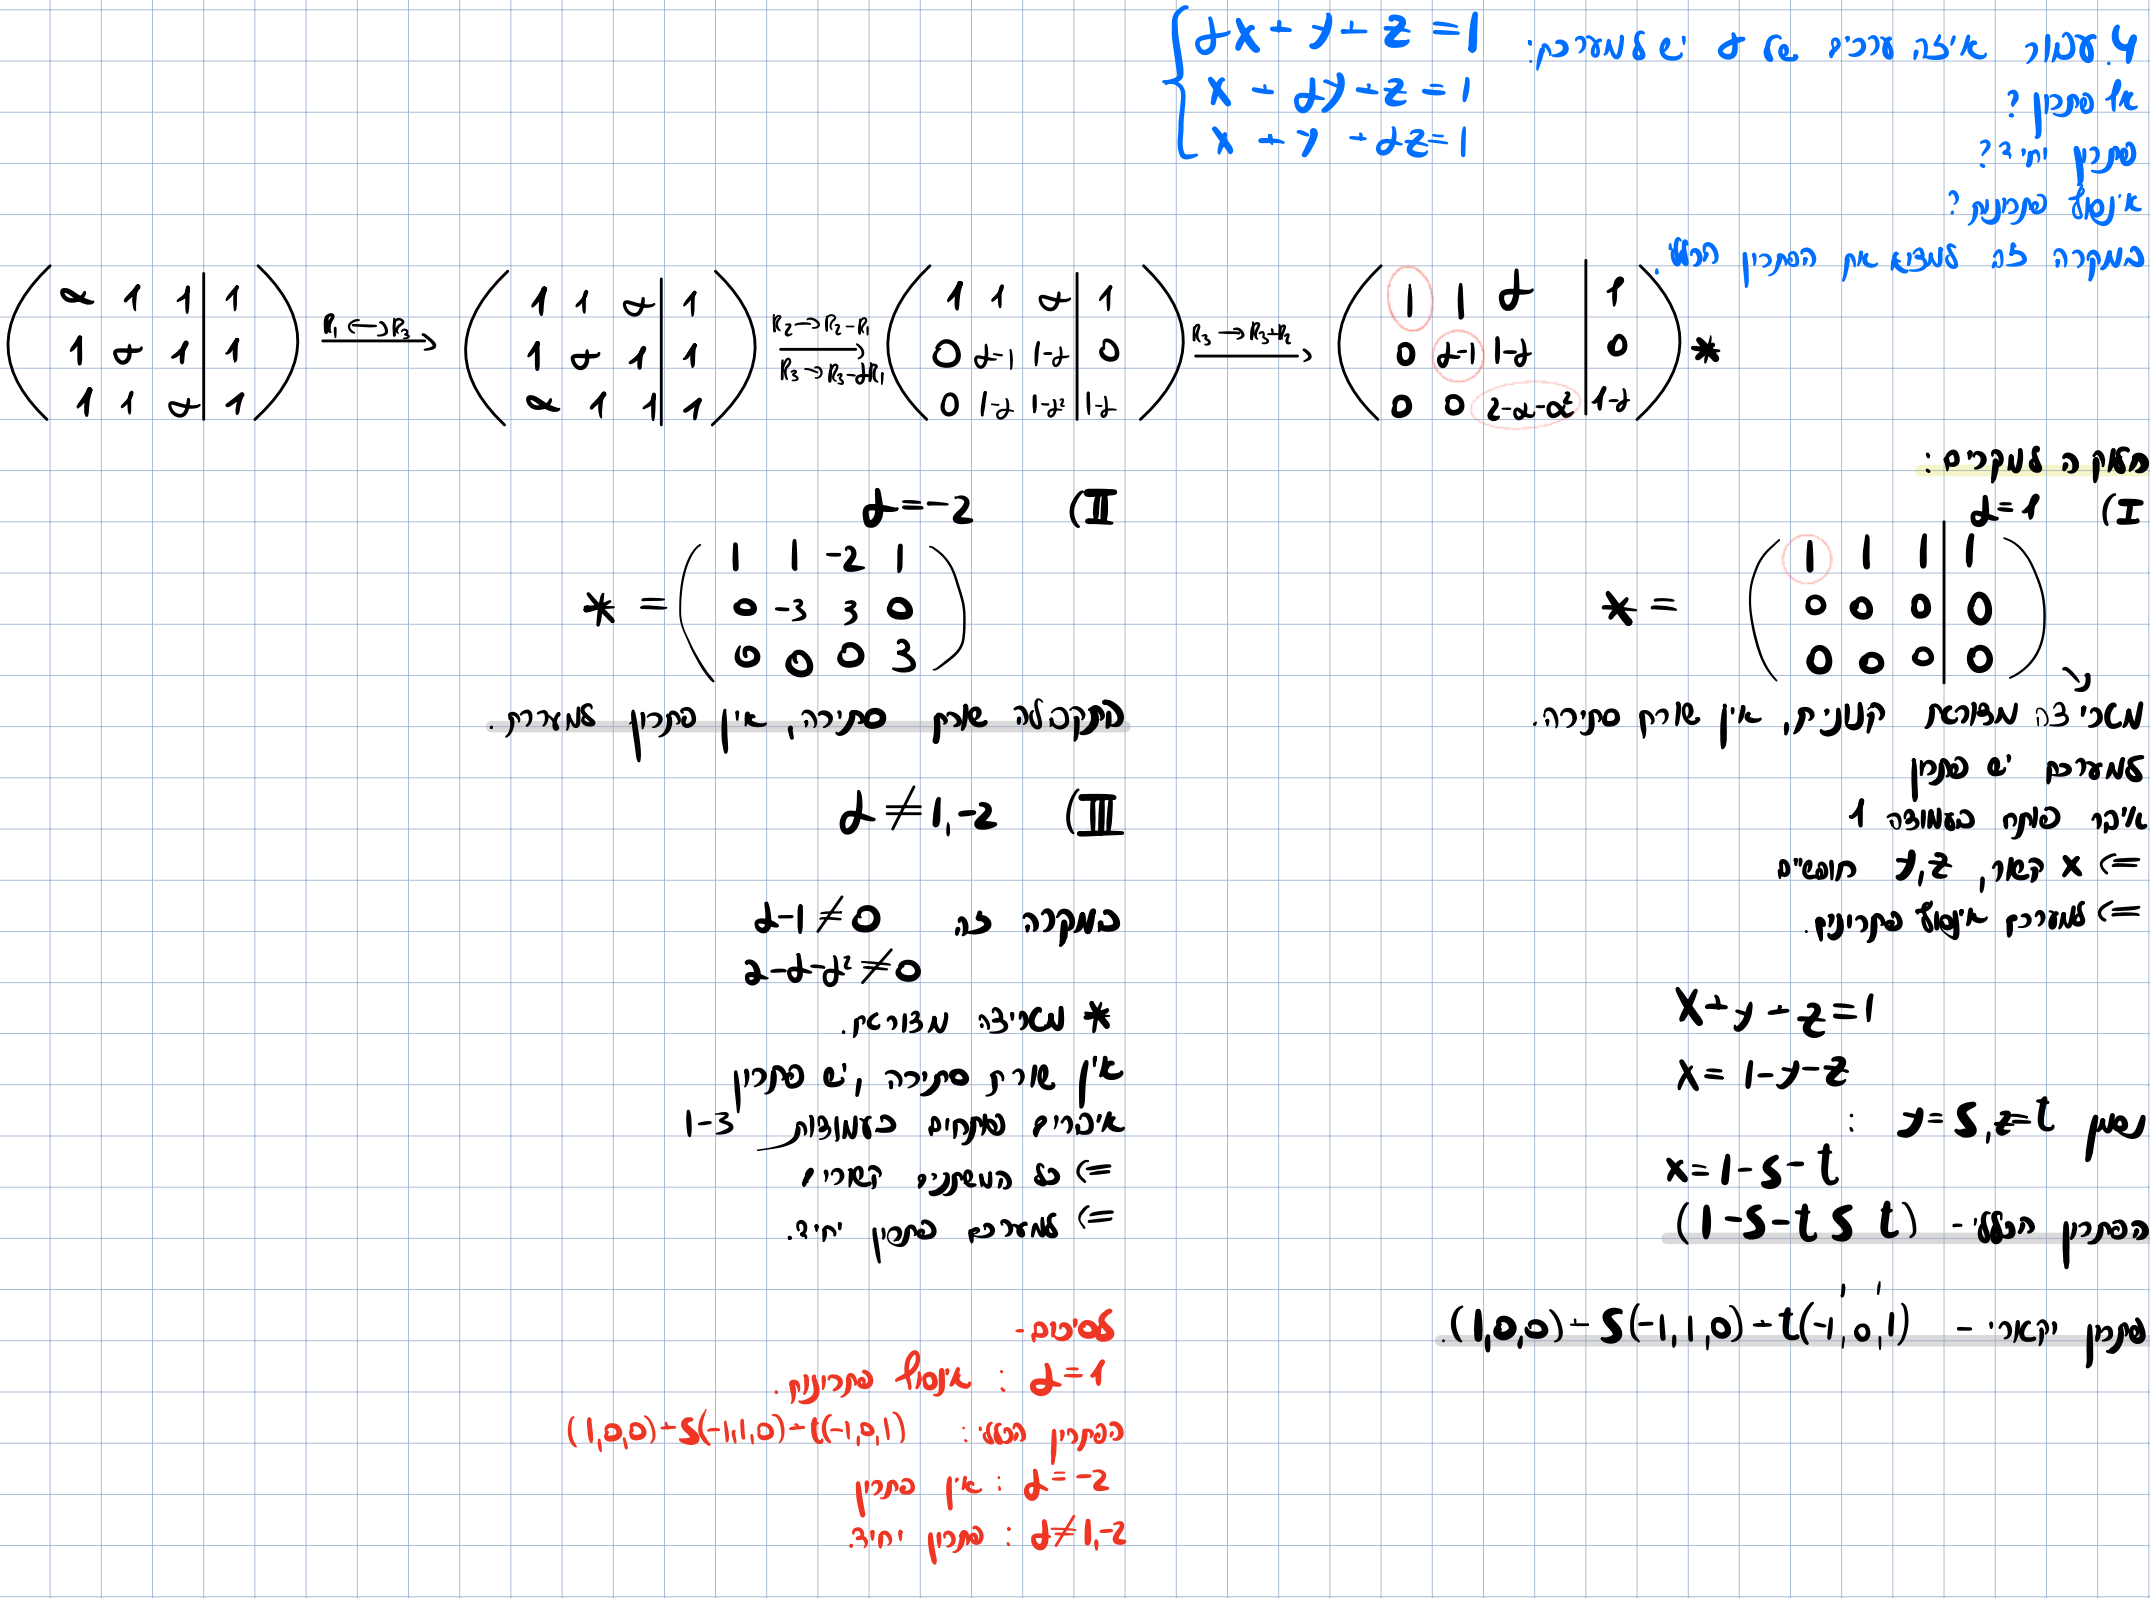 4. עבור איזה ערכים של α יש למערכת:
αx + y + z = 1
x + αy + z = 1
x + y + αz = 1
אף פתרון?
פתרון יחיד?
אינסוף פתרונות?
במקרה זה למצוא את הפתרון הכללי.
( α 1 1 | 1 ) R₁ ↔ R₃ ( 1 1 α | 1 ) R₂ → R₂ - R₁ ( 1 1 α | 1 ) R₃ → R₃ + R₂ ( 1 1 α | 1 )
( 1 α 1 | 1 ) ( 1 α 1 | 1 ) R₃ → R₃ - αR₁ ( 0 α-1 1-α | 0 ) ( 0 α-1 1-α | 0 ) *
( 1 1 α | 1 ) ( α 1 1 | 1 ) ( 0 1-α 1-α² | 1-α ) ( 0 0 2-α-α² | 1-α )
חלוקה למקרים:
I) α=1
* = ( 1 1 1 | 1 )
( 0 0 0 | 0 )
( 0 0 0 | 0 )
מטריצה מדורגת קנונית, אין שורת סתירה.
למערכת יש פתרון
איבר פותח בעמודה 1
=> x קשור, y,z חופשיים
=> למערכת אינסוף פתרונות.
x + y + z = 1
x = 1-y-z
נסמן y=s, z=t :
x = 1-s-t
הפתרון הכללי - (1-s-t s t)
פתרון וקטורי - (1,0,0) + s(-1,1,0) + t(-1,0,1).
II) α=-2
* = ( 1 1 -2 1 )
( 0 -3 3 0 )
( 0 0 0 3 )
התקבלה שורת סתירה, אין פתרון למערכת.
III) α≠1,-2
במקרה זה α-1≠0
2-α-α²≠0
* מטריצה מדורגת.
אין שורת סתירה, יש פתרון
איברים פותחים בעמודות 1-3
=> כל המשתנים קשורים
=> למערכת פתרון יחיד.
לסיכום-
α=1 : אינסוף פתרונות.
הפתרון הכללי: (1,0,0) + s(-1,1,0) + t(-1,0,1)
α=-2 : אין פתרון
α≠1,-2 : פתרון יחיד.